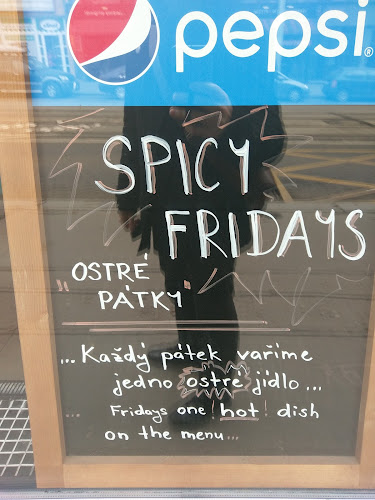 pepsi
SPICY
FRIDAYS
"OSTRÉ
PÁTKY"
...Každý pátek vaříme
jedno ostré jídlo...
... Fridays one! hot! dish
on the menu...